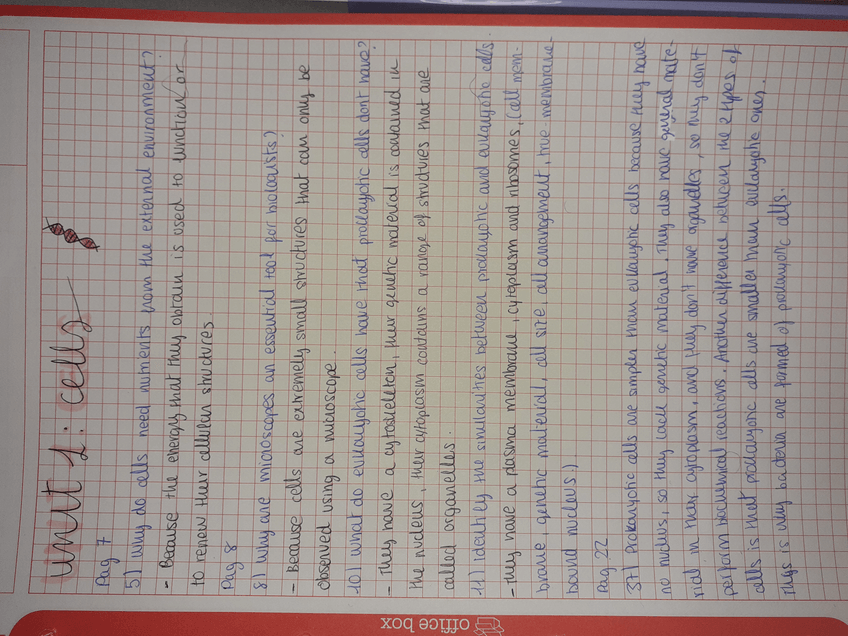 Unit 1: cells
Pag 7
5) Why do cells need nutrients from the external environment?
- Because the energy that they obtain is used to function or
to renew their cellular structures.
Pag 8
8) Why are microscopes an essential tool for biologists?
- Because cells are extremely small structures that can only be
observed using a microscope.
10) What do eukaryotic cells have that prokaryotic cells don't have?
- They have a cytoskeleton, their genetic material is contained in
the nucleus, their cytoplasm contains a range of structures that are
called organelles.
11) identify the similarities between prokaryotic and eukaryotic cells.
- They have a plasma membrane, cytoplasm and ribosomes, (cell mem-
brane, genetic material, cell size, cell arrangement, true membrane
bound nucleus)
Pag 22
37) Prokaryotic cells are simpler than eukaryotic cells because they have
no nucleus, so they lack genetic material. They also have general mate-
rial in their cytoplasm, and they don't have organelles, so they don't
perform biochemical reactions. Another difference between the 2 types of
cells is that prokaryotic cells are smaller than eukaryotic ones.
This is why bacteria are formed of prokaryotic cells.
office box